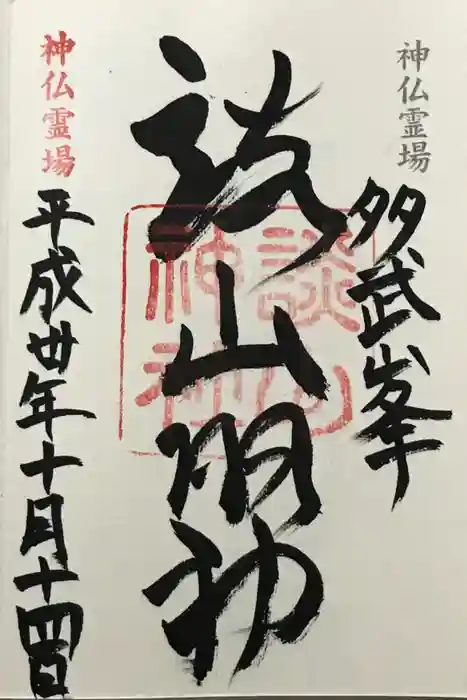 神仏霊場
多武峯
談山明神
談山
神社
神仏霊場
平成卅年十月十四日